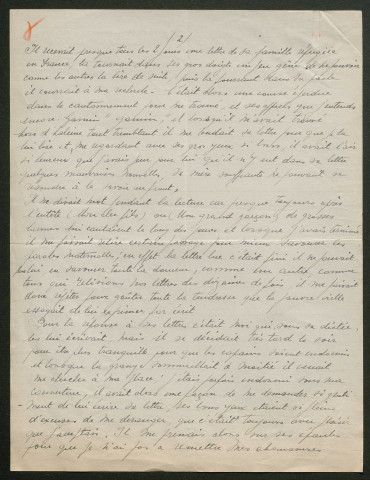 8
2/
Il recevait presque tous les 2 jours une lettre de sa famille réfugiée
en France, la tournait dans ses gros doigts un peu gêné de ne pouvoir
comme les autres la lire de suite, puis la fourrant dans sa poche
il courrait à ma recherche. C'était alors une course éperdue
dans le cantonnement pour me trouver, et ses appels que j'entends
encore "Gamin" "gamin", et lorsqu'il m'avait trouvé
hors d'haleine tout tremblant il me tendait sa lettre pour que je la
lui lise et, me regardant avec ses gros yeux si bons, il avait l'air
si anxieux que j'avais peur pour lui qu'il n'y eut dans sa lettre
quelques mauvaises nouvelles, sa mère souffrante ne pouvant se
résoudre à le savoir au front.
Il ne disait mot pendant la lecture car presque toujours après
l'entête (Mon cher fils) ou (Mon grand garçon) de grosses
larmes lui coulaient le long des joues et lorsque j'avais terminé
il me faisait relire certains passages pour mieux savourer les
paroles maternelles; en effet la lettre lue c'était fini il ne pouvait
lui en savourer toute la douceur, comme son autre, comme
tous qui relisions nos lettres des dizaines de fois. il me suivait
donc après pour goûter toute la tendresse que la pauvre vieille
essayait de lui exprimer par écrit
Pour la réponse à ses lettres c'était moi qui, sous sa dictée,
les lui écrivait, mais il se décidait très tard le soir
pour être plus tranquille pour que les copains soient endormis
et lorsque la grange sommeillait à moitié il venait
me chercher à ma "place" j'étais parfois endormi sous ma
couverture, il avait alors une façon de me demander si gentiment
de lui écrire sa lettre, ses bons yeux étaient si pleins
d'excuses de me déranger que c'était toujours avec plaisir
que j'acceptais. Il me prenait alors sur ses épaules
pour que je n'ai pas à remettre mes chaussures